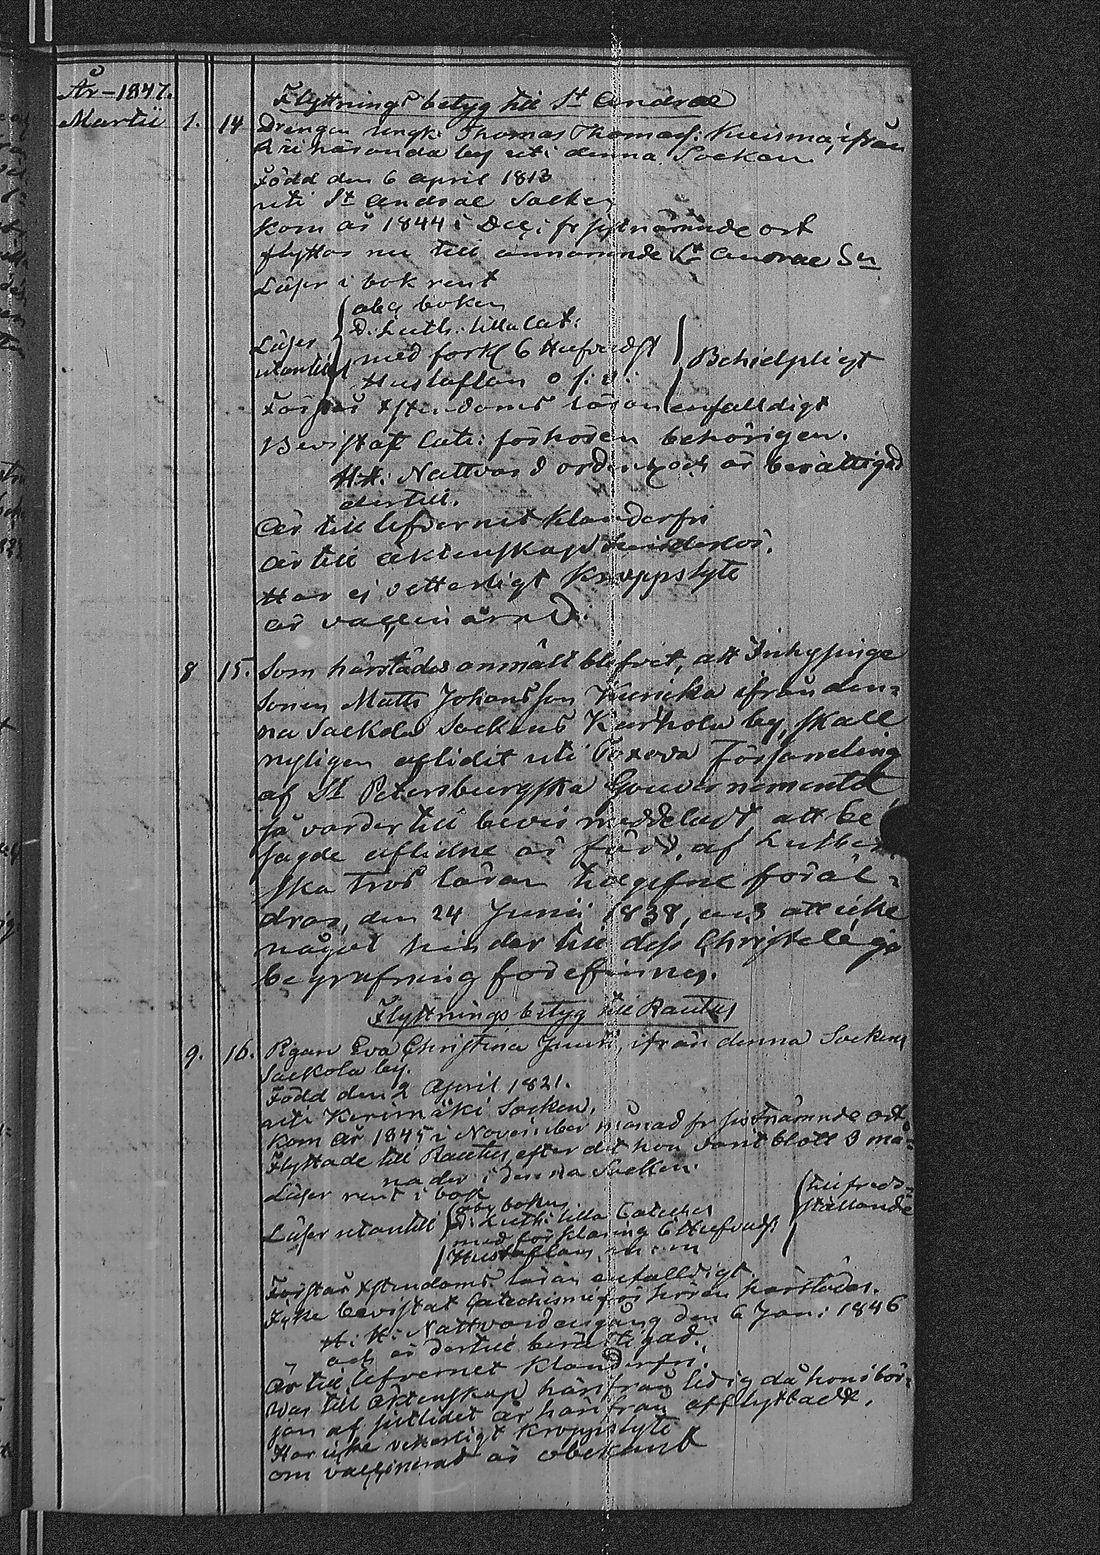 År - 1847.
Flyttnings betyg till St Andreæ
Martii 1. 14 Drengen ungk: Thomas Thomass: Kuisma, ifrån
by uti denna Socken
Född den 6 April 1813
uti St Andreæ Socken
kom år 1844 i Dec: fr sistnämnde ort
flyttar nu till St Andreæ Sn
Läser i bok rent
abc boken
D. Luth: lilla Cat:
Läser utantill med förkl 6 Hufvudst Behielpligt
Hustaflan o. s. v.
Förstår Xstendoms läran enfalldigt
Bevistat Cate: förhören behörigen.
H. H. Nattvard och är berättigad
dertill.
Är till lefvernet klanderfri
är till äktenskap hinderlös.
Har ej vetterligt kroppslyte
är vaccinerad.
8 15. Som härstädes anmält blifvit, att Inhysinge
Sonen Matts Johansson ifrån den-
na Sackola Sockens Karhola by, skall
nyligen aflidit uti Toxova Församling
af St Petersburgska Gouvernementet
så varder till bevis meddeladt att be-
sagde aflidne är född, af Luther-
ska tros läran tillgifne föräl-
drar, den 24 Junii 1838, och att icke
något hinder till dess Christeliga
begrafning förefinnes.
Flyttnings betyg till Rautus
9. 16. Pigan Eva Christina ifrån denna Sockens
Sackola by.
Född den 2 April 1821.
uti Kerimäki Socken.
kom år 1845 i November månad fr sistnämnde ort
Flyttade till Rautus efter det hon varit blott 3 må-
nader i denna Socken.
Läser rent i bok
abc boken
Läser utantill D: Luth: lilla Cateches tillfreds-
med förklaring 6 Hufvudst ställande
Hustaflan m: m
Förstår Xstendoms läran enfalldigt
Icke bevistat Catechismi förhören härstädes.
H: H: Nattvarden den 6 Jan: 1846
och är dertill berättigad.
är till lefvernet klanderfri.
Var till äktenskap härifrån ledig då hon i bör-
jan af sistlidet år härifrån afflyttade.
Har icke veterligt kroppslyte
om vaccinerad är obekant